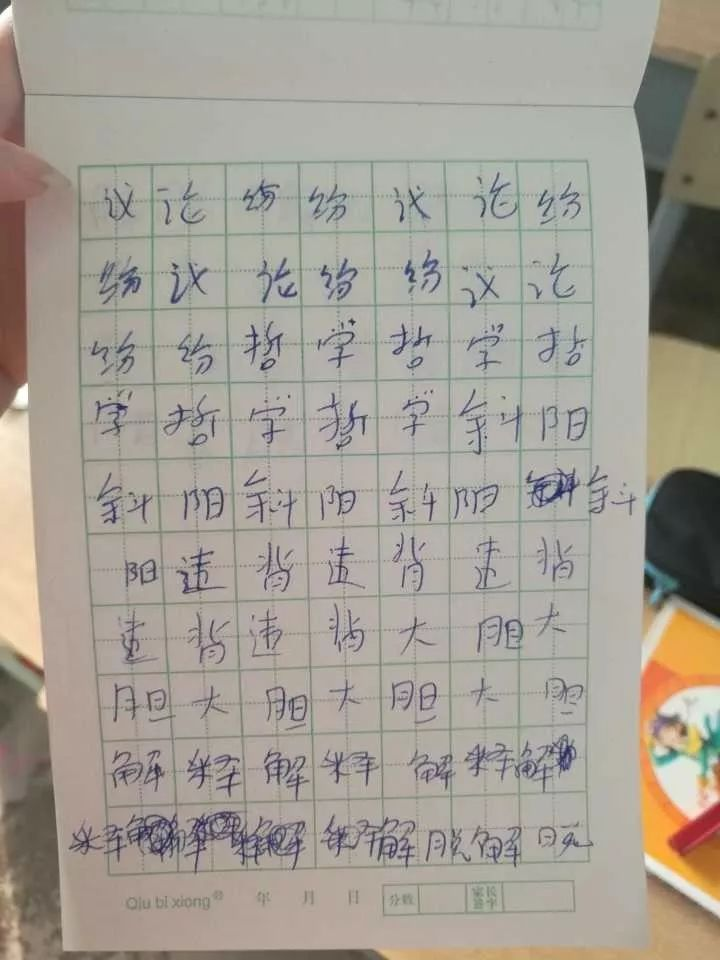 议论纷纷议论纷
纷议论纷纷议论
纷纷哲学哲学哲
学哲学哲学斜阳
斜阳斜阳斜阳斜
阳违背违背违背
违背违背大胆大
胆大胆大胆大胆
解释解释解释解
释解释解脱解脱
Qiu bi xiong® 年 月 日 分数 家长签字